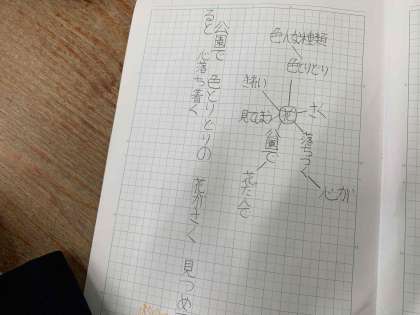 色んな種類
色とりどり
きれい
さく
見てなまう
花
公園で
落ちつく
心が
花だんで
公園で 色とりどりの 花がさく 見つめ
ると 心落ち着く